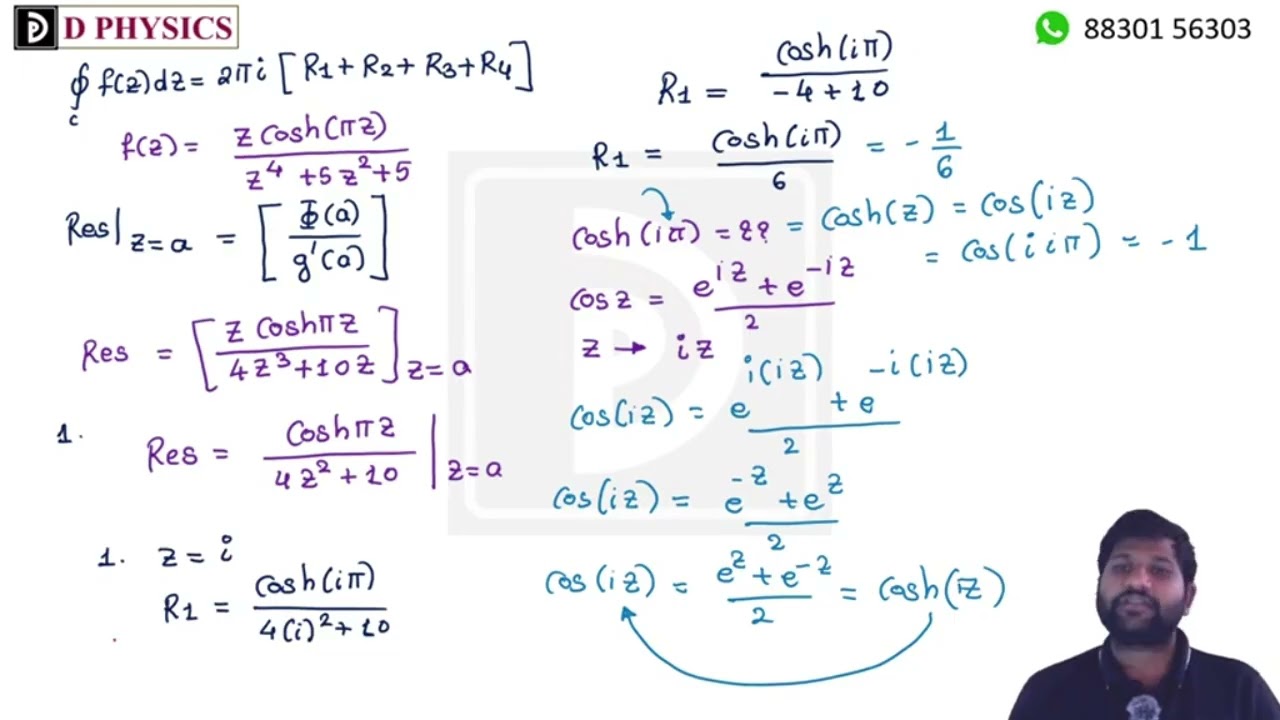 D PHYSICS
88301 56303
∮c f(z)dz = 2πi [R1 + R2 + R3 + R4]
f(z) = z cosh(πz) / z⁴ + 5z² + 5
Res|z=a = [Φ(a) / g'(a)]
Res = [z coshπz / 4z³ + 10z] z=a
1.
Res = coshπz / 4z² + 10 | z=a
1. z = i
R1 = cosh(iπ) / 4(i)² + 10
R1 = cosh(iπ) / -4 + 10
R1 = cosh(iπ) / 6 = - 1/6
cosh(iπ) = ?? = cosh(z) = cos(iz)
= cos(i iπ) = -1
cos z = e^{iz} + e^{-iz} / 2
z → iz
cos(iz) = e^{i(iz)} + e^{-i(iz)} / 2
cos(iz) = e^{-z} + e^{z} / 2
cos(iz) = e^{z} + e^{-z} / 2 = cosh(z)